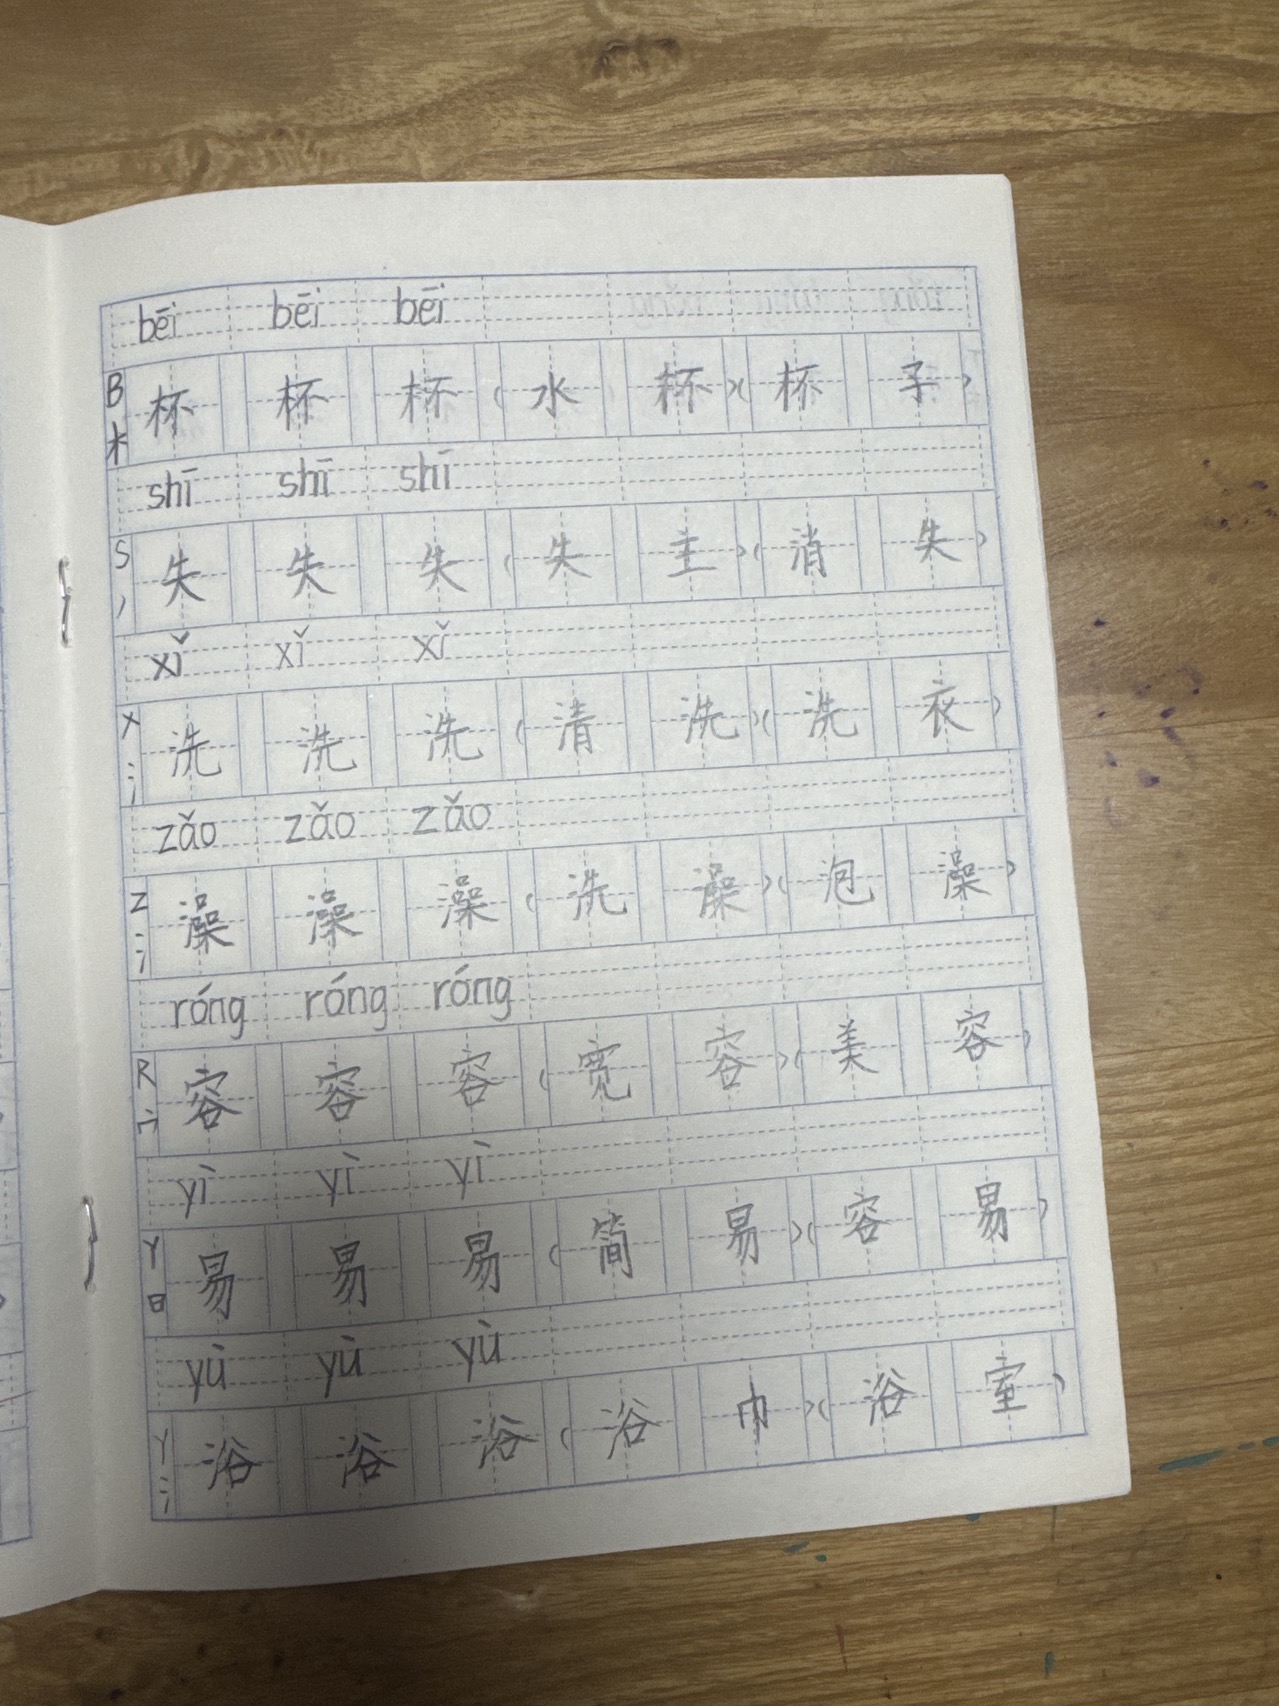 bēi bēi bēi
B 木 杯 杯 杯 (水 杯)(杯 子)
shī shī shī
S 丿 失 失 失 (失 主)(消 失)
xǐ xǐ xǐ
X 氵 洗 洗 洗 (清 洗)(洗 衣)
zǎo zǎo zǎo
Z 氵 澡 澡 澡 (洗 澡)(泡 澡)
róng róng róng
R 宀 容 容 容 (宽 容)(美 容)
yì yì yì
Y 日 易 易 易 (简 易)(容 易)
yù yù yù
Y 氵 浴 浴 浴 (浴 巾)(浴 室)